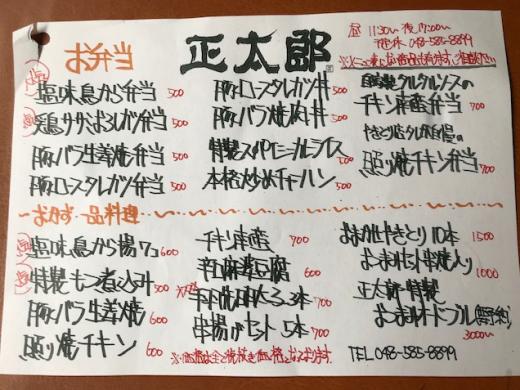 お弁当
正太郎
昼 11:30〜 夜 17:00〜
048-585-8899
塩味鳥から弁当 500
鶏ササミおろしカツ弁当 500
豚バラ生姜焼弁当 500
豚ロースタレカツ弁当 500
豚ロースタレカツ丼 500
豚バラ焼肉丼 500
特製スパイシーカレーライス 500
本格炒めチャーハン 500
自家製タルタルソースの
チキン南蛮弁当 700
やきとり店タレが自慢の
照り焼チキン弁当 700
おかず一品料理
塩味鳥から揚7コ 600
特製もつ煮込み 500
豚バラ生姜焼 600
照り焼チキン 600
チキン南蛮 700
辛口麻婆豆腐 600
3本 700
串揚げセット 5本 700
おまかせやきとり10本 1500
おつまみセット串焼入り 1000
正太郎特製
おつまみオードブル(要予約) 3000〜
※価格は全て税抜き価格となっております。
TEL 048-585-8899